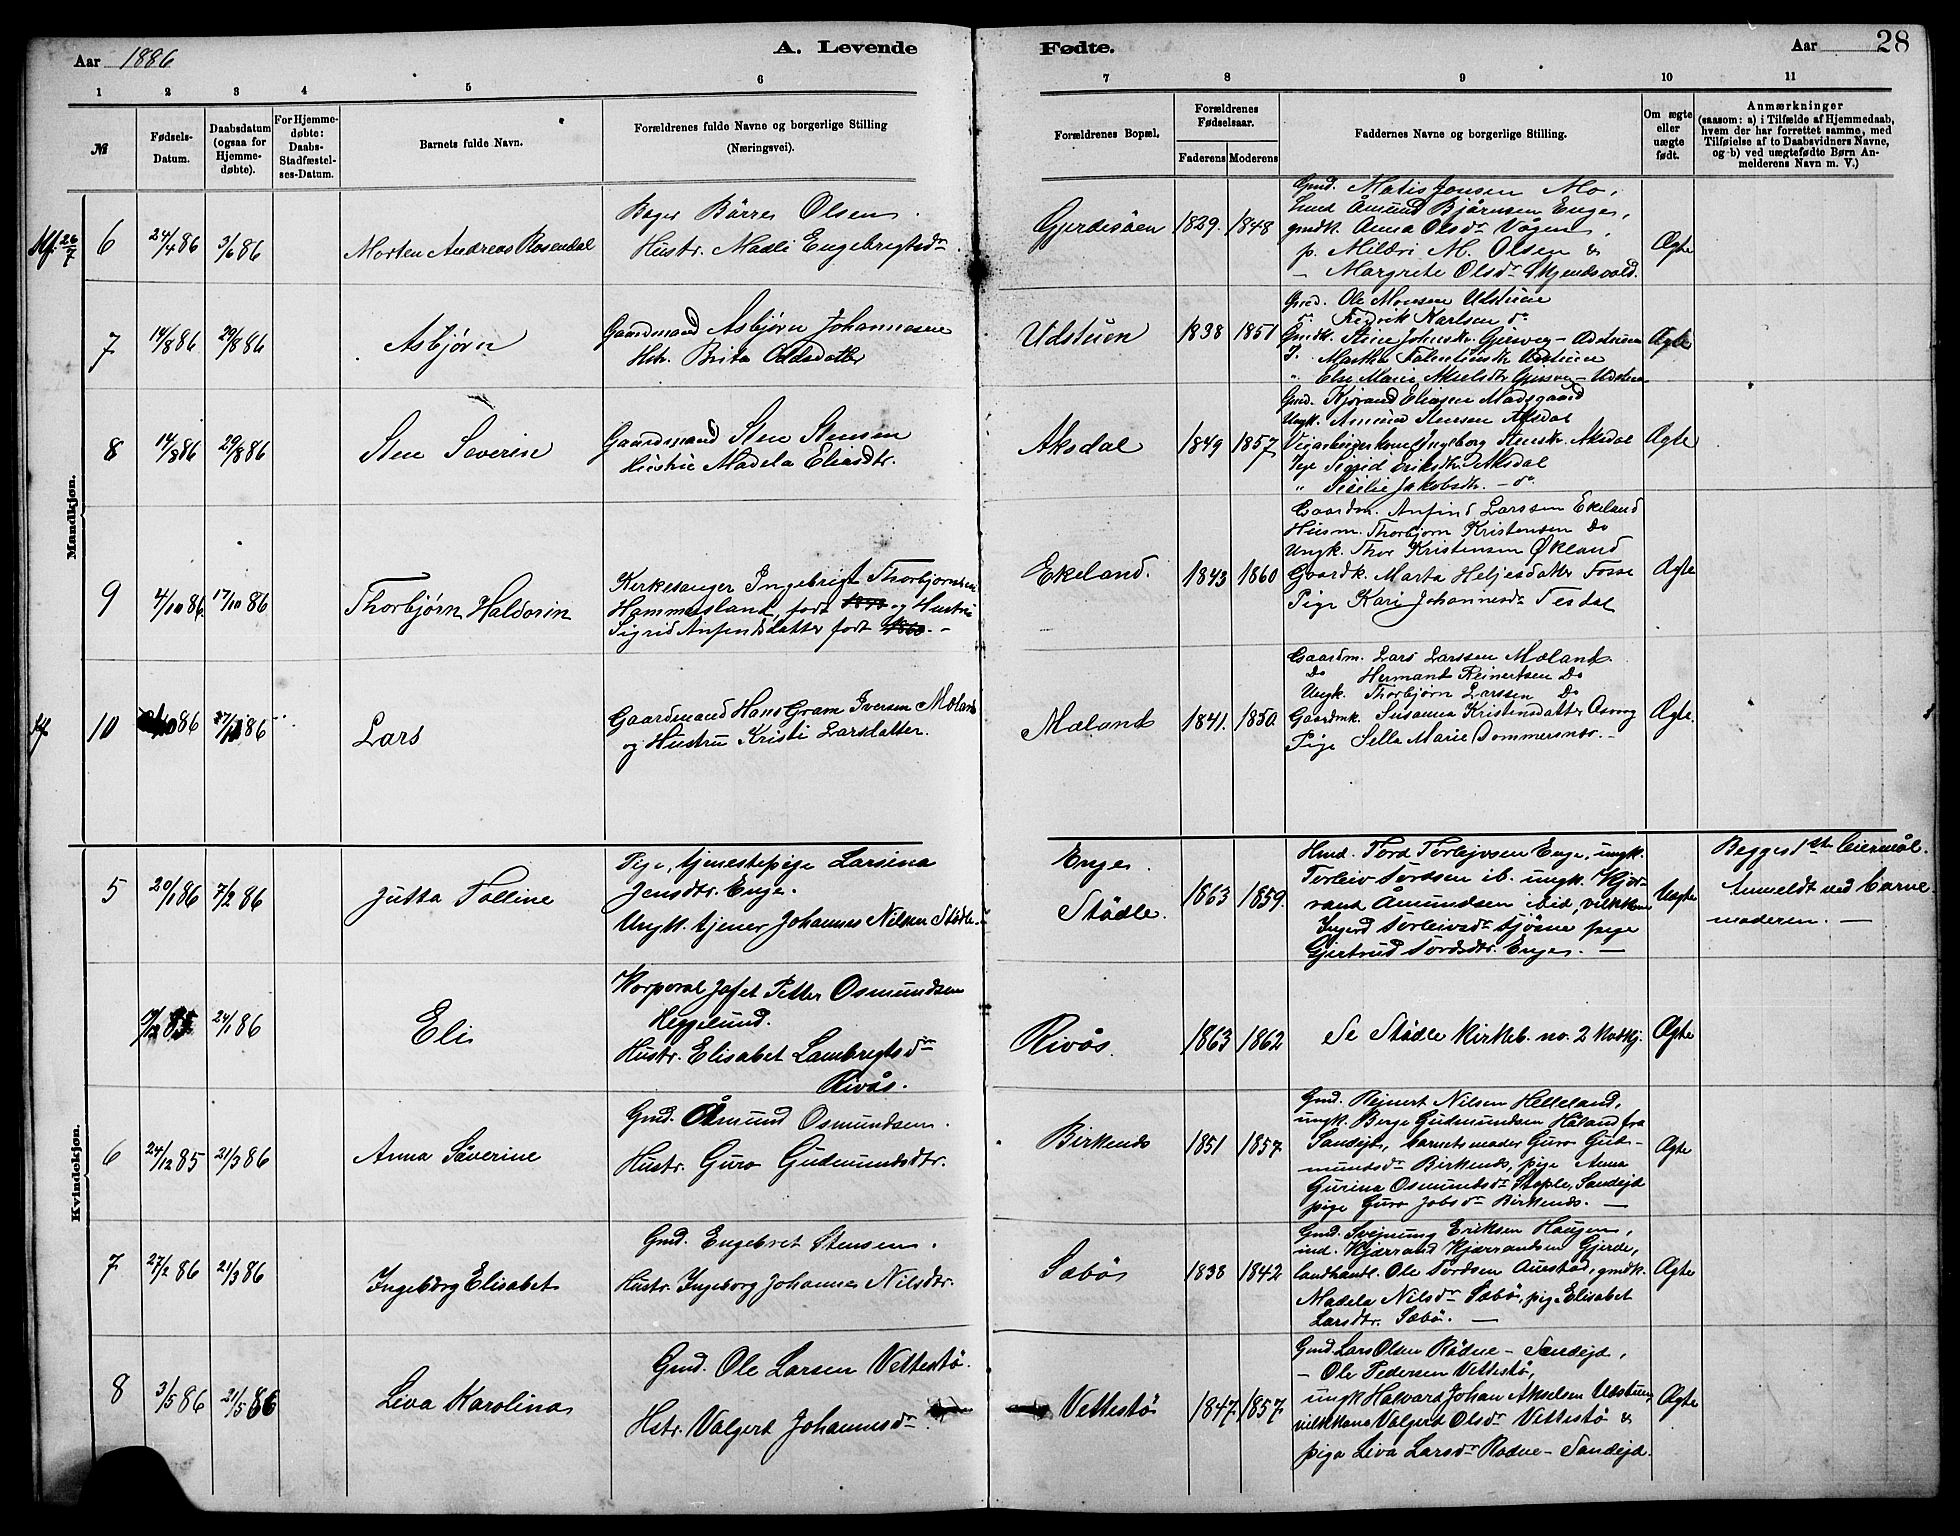 Aar 1886
A. Levende
Fødte.
Aar
28
1 2 3 4 5 6 7 8 9 10 11
№
Fødsels-
Datum.
Daabsdatum
(ogsaa for
Hjemme-
døbte).
For Hjemme-
døbte:
Daabs-
Stadfæstel-
ses-Datum.
Barnets fulde Navn.
Forældrenes fulde Navne og borgerlige Stilling
(Næringsvei).
Forældrenes Bopæl.
Forældrenes
Fødselsaar.
Faderens Moderens
Faddernes Navne og borgerlige Stilling.
Om ægte
eller
uægte
født.
Anmærkninger
(saasom: a) i Tilfælde af Hjemmedaab,
hvem der har forrettet samme, med
Tilføielse af to Daabsvidners Navne,
og b) ved uægtefødte Børn An-
melderens Navn m. V.)
Mandkjøn.
6 24/4 86 3/6 86
Morten Andreas Rosendal
Børres Olsen
Hustr. Madli Engebrigtsdr
Gjerdesøen 1829. 1848
Gmd. Matis Jonsen Mo,
Åmund Bjørnsen Enges,
gmdk. Anna Olsdr Vågen,
p. Mildri M. Olsen &
– Margrete Olsdr Skjendsvold.
Ægte
7 14/8 86 29/8 86
Asbjørn
Gaardmand Asbjørn Johannesen
Hstr. Brita
Udstuen 1838 1851
Gmd. Ole Monsen Udstuen
d. Fredrik Karlsen do
Ægte
8 14/8 86 29/8 86
Sten Severin
Gaardmand Sten Stensen
Hustru Madela Eliasdtr.
Aksdal 1849 1857
Gmd. Kjørand Eliasen Madsgaard
Ungk. Stensen Aksdal
Ingeborg Stensdr. Aksdal
Pige Sigrid Eriksdtr. Aksdal
" Sesilie Jakobsdtr. – do
Ægte
9 4/10 86 17/10 86
Thorbjørn Haldorin
Kirkesanger Ingebrigt Thorbjørnsen
Hammersland, født og Hustru
Sigrid Anfindsdatter født 1860. –
Ekeland. 1843 1860
Gaardm. Anfind Larssen Ekeland
Husm. Thorbjørn Kristensen Do
Ungk. Thor Kristensen Økland
Gaardk. Marta Heljesdatter Fosse
Pige Kari Johannesdr Tesdal
Ægte
10 86 86
Lars
Gaardmand Hans Gram Iversen Mæland
og Hustru Kristi Larsdatter.
Mæland 1841. 1850.
Gaardm. Lars Larssen Mæland.
Do Hermand Reinertsen Do
Ungk. Thorbjørn Larssen Do
Gaardmk. Susanna Kristensdatter Osvog
Pige Sella Marie Sommersnes. –
Ægte.
Kvindekjøn.
5 20/1 86 7/2 86
Jutta Tolline
Pige, tjenestepige Larsina
Jensdtr. Enge.
Ungk. tjener Johannes Nilsen Stødle.
Enge
Stødle. 1863 1859.
Hmd. Tord Torleivsen Enge, ungk.
Torleiv Tordsen ib. ungk. Kjør-
rand Åmundsen Eid,
Ingerd Torleivsdr pige
Gjertrud Tordsdtr. Enge. –
Uægte
Begges 1ste leiermål.
Anmeldt ved barne-
moderen. –
85 24/1 86
Eli
Korporal Jafet Petter Osmundsen
Heggelund.
Hustr. Elisabet Lambregtsdr
Rivås.
Rivås. 1863 1862
Se Stødle kirkeb. no. 2 kvdkj.
Ægte
6 24/12 85 21/3 86
Anna Såverine
Gmd. Åmund Osmundsen.
Hustr. Guro Gudmundsdtr.
Birkenes 1851 1857.
Gmd. Rejnert Nilsen Helleland,
ungk. Berge Gudmundsen Håland fra
Sandejd, barnets moder Guro Gud-
mundsdr Birkenes, pige Anna
Gurina Osmundsdr Stople, Sandejd
pige Guro Jobsdr Birkenes. –
Ægte
7 27/2 86 21/3 86
Ingeborg Elisabet
Gmd. Engebret Stensen.
Hustr. Ingeborg Johannes Nilsdtr.
Sæbø 1838 1842
Gmd. Svejnung Eriksen Haugen,
ind. Kjærrand Kjærrandsen Gjerde,
landhandl. Ole Tordsen Auestad, gmdk.
Madela Nilsdr Sæbø, pige Elisabet
Larsdtr. Sæbø. –
Ægte
8 3/5 86 21/5 86
Liva Karolina
Gmd. Ole Larsen Vettestø.
Hstr. Valgert Johannesdr
Vettestø 1847. 1857.
Gmd. Lars Olsen Rødne – Sandejd,
– Ole Pedersen Vettestø,
ungk Halvard Johan Akselsen Udstuen,
Valgerd Olsdr Vettestø &
pige Liva Larsdr Rødne – Sandejd.
Ægte